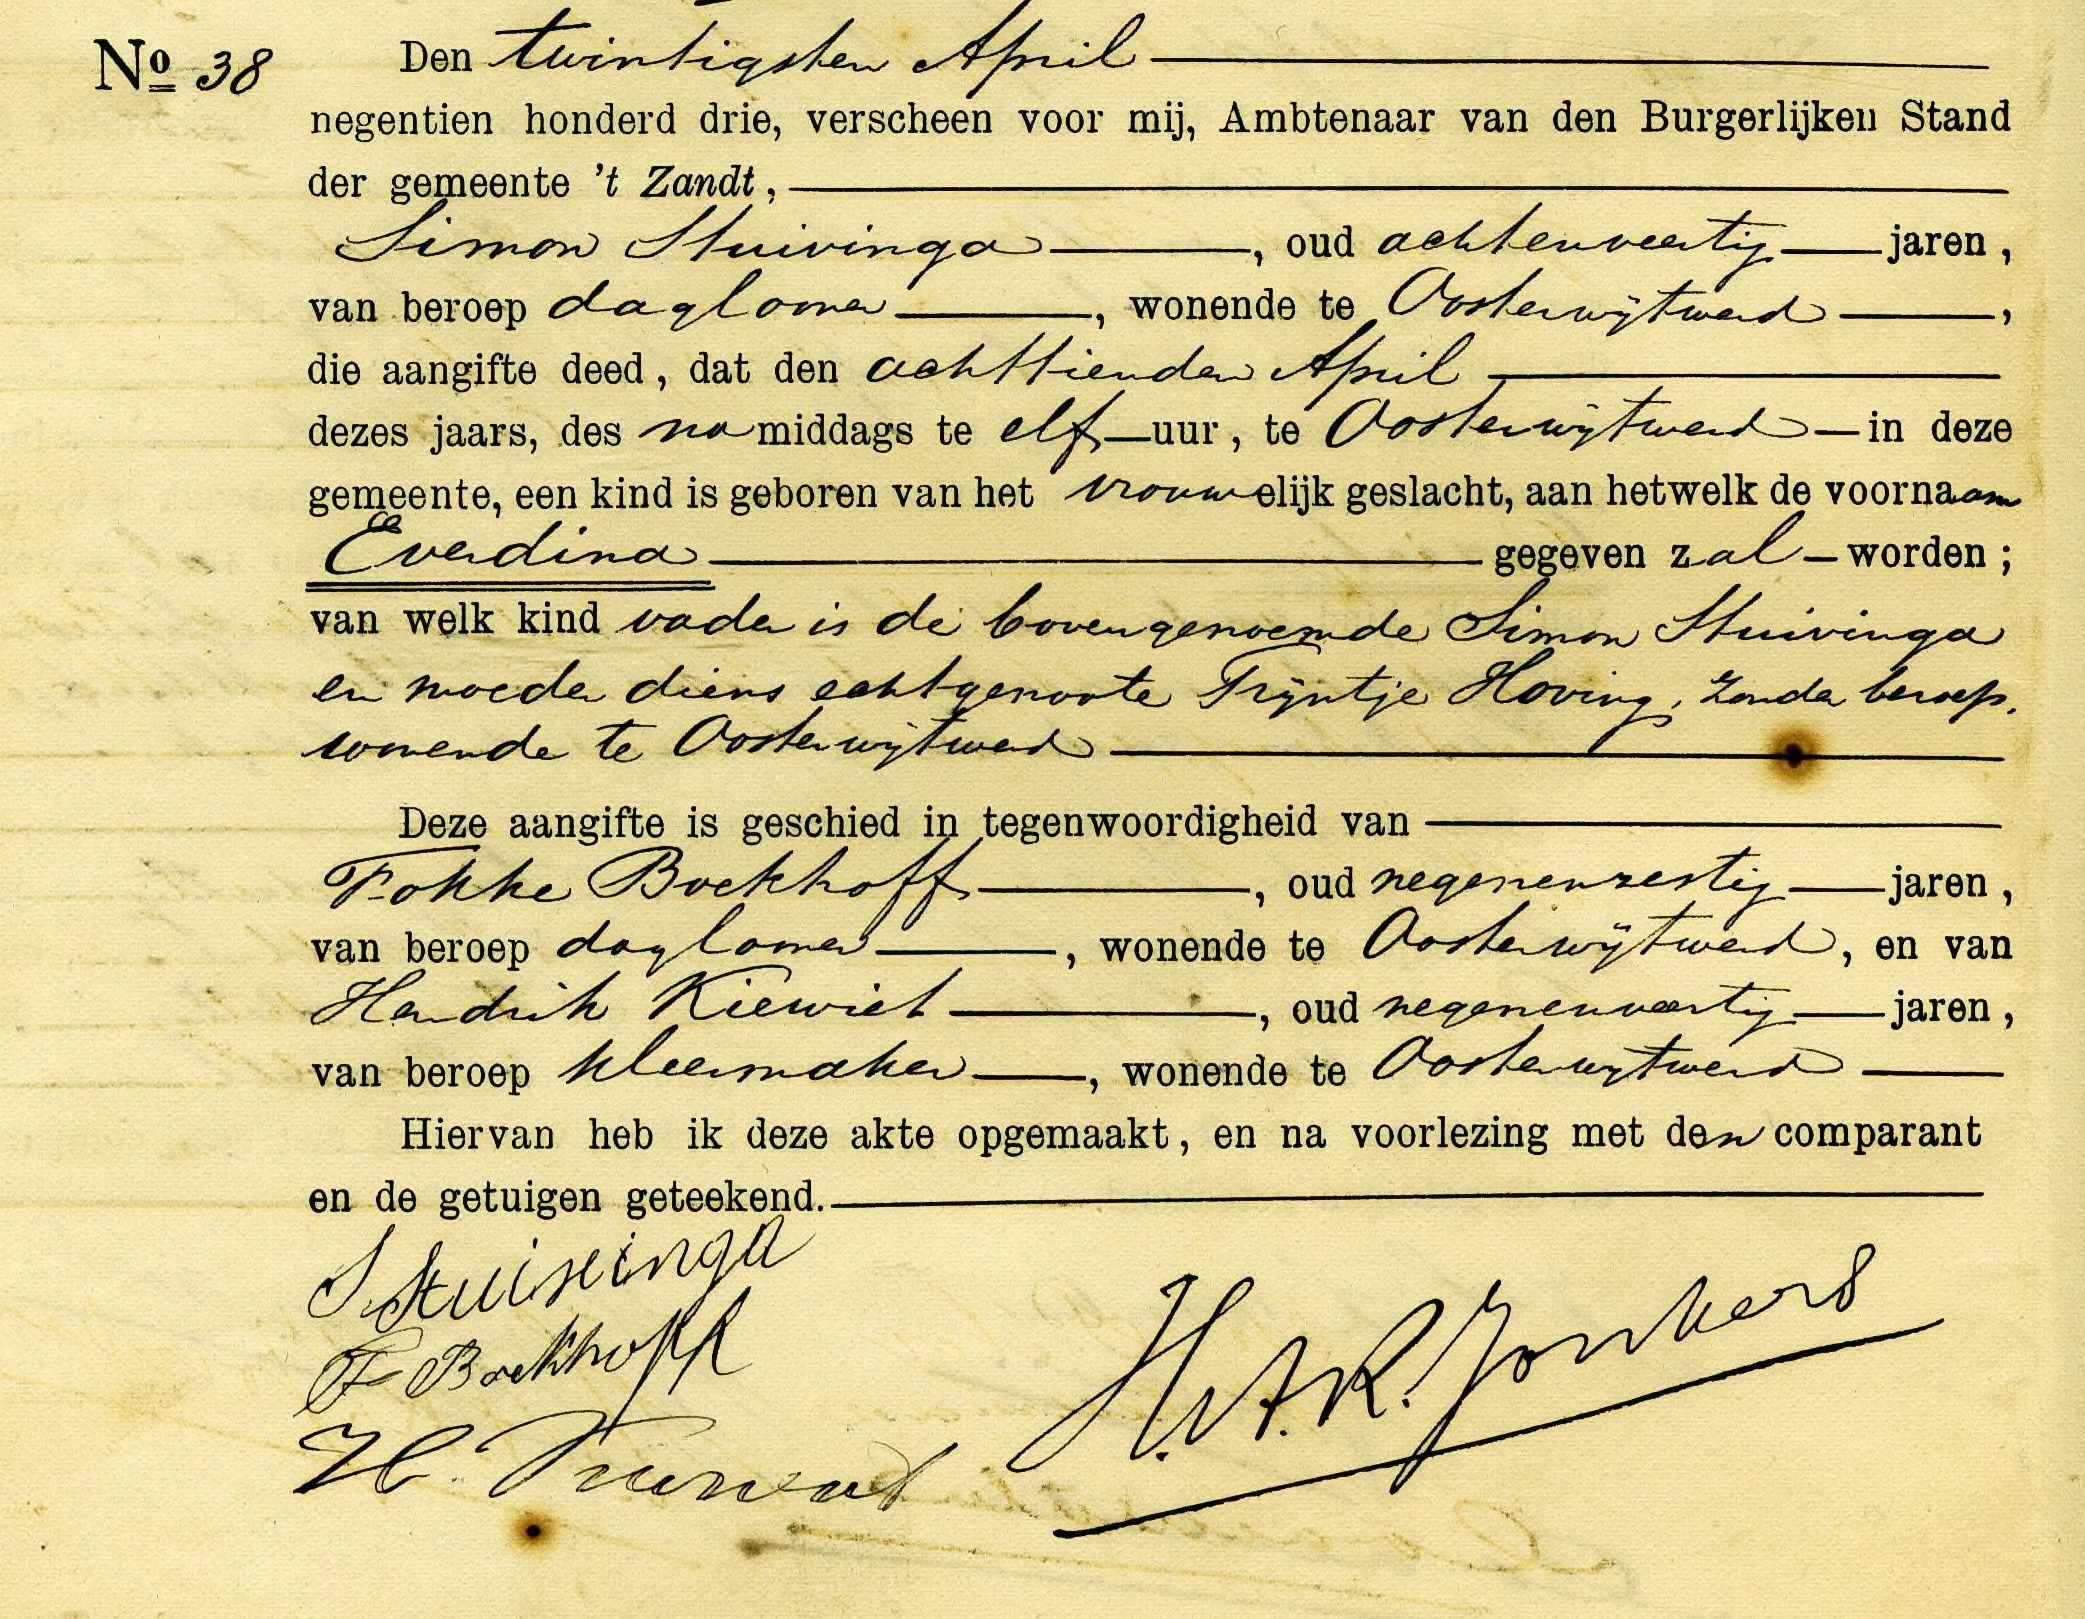 No 38 Den twintigsten April
negentien honderd drie, verscheen voor mij, Ambtenaar van den Burgerlijken Stand
der gemeente 't Zandt,
Simon Stuivinga, oud achtenveertig jaren,
van beroep daglooner, wonende te Oosterwijtwerd,
die aangifte deed, dat den achttienden April
dezes jaars, des namiddags te elf uur, te Oosterwijtwerd in deze
gemeente, een kind is geboren van het vrouwelijk geslacht, aan hetwelk de voornaam
Everdina gegeven zal worden;
van welk kind vader is de bovengenoemde Simon Stuivinga
en moeder diens echtgenoote Trijntje Hoving, zonder beroep,
wonende te Oosterwijtwerd
Deze aangifte is geschied in tegenwoordigheid van
Fokke Boekhoff, oud negenenzestig jaren,
van beroep daglooner, wonende te Oosterwijtwerd, en van
Hendrik Kiewiet, oud negenenveertig jaren,
van beroep kleermaker, wonende te Oosterwijtwerd
Hiervan heb ik deze akte opgemaakt, en na voorlezing met den comparant
en de getuigen geteekend.
S Stuivinga
F Boekhoff
H. Kiewiet
H.A.R. Jonkers